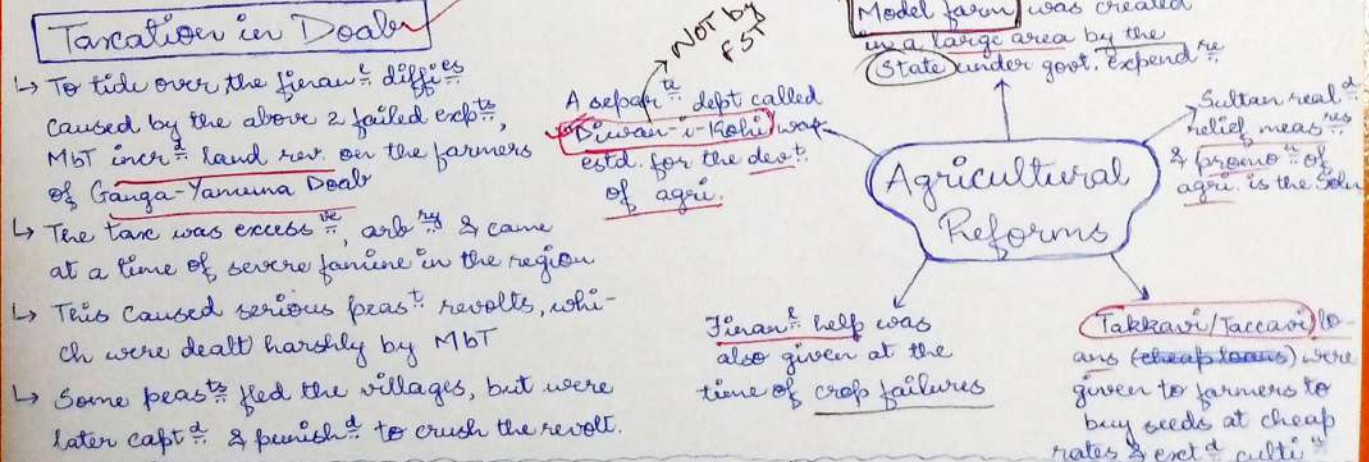 Taxation in Doab
↳ To tide over the finanl diffies
caused by the above 2 failed expts,
MbT incrd land rev. on the farmers
of Ganga-Yamuna Doab
↳ The tax was excessve, arbry & came
at a time of severe famine in the region
↳ This caused serious peast revolts, whi-
ch were dealt harshly by MbT
↳ Some peasts fled the villages, but were
later captd & punishd to crush the revolt.
NOT by
FST
A separte dept called
Diwan-i-Kohi was
estd. for the devt
of agri.
Model farm was created
in a large area by the
State under govt. expendre
Sultan reald
relief measres
& promon of
agri. is the Soln
Agricultural
Reforms
Finanl help was
also given at the
time of crop failures
Takkavi/Taccavi lo-
ans (cheap loans) were
given to farmers to
buy seeds at cheap
rates & extd culti